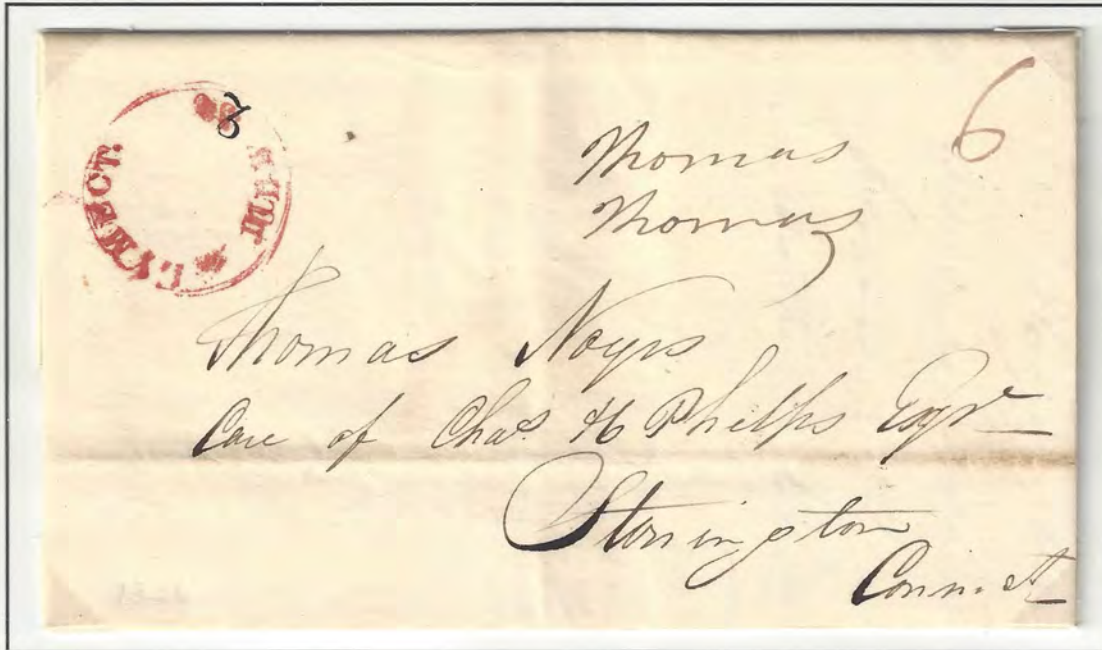 LYME CT.
2
6
Thomas
Thomas
Thomas Noyes
Care of Chas. H Phelps Esqr
Stonington
Connect